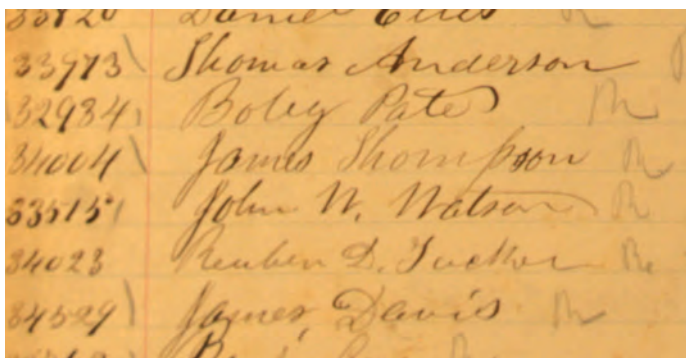 33820 Daniel Ellis
33973 Thomas Anderson
32984 Boley Pate
34004 James Thompson
33515 John W. Watson
34023 Reuben D. Tucker
34529 James Davis